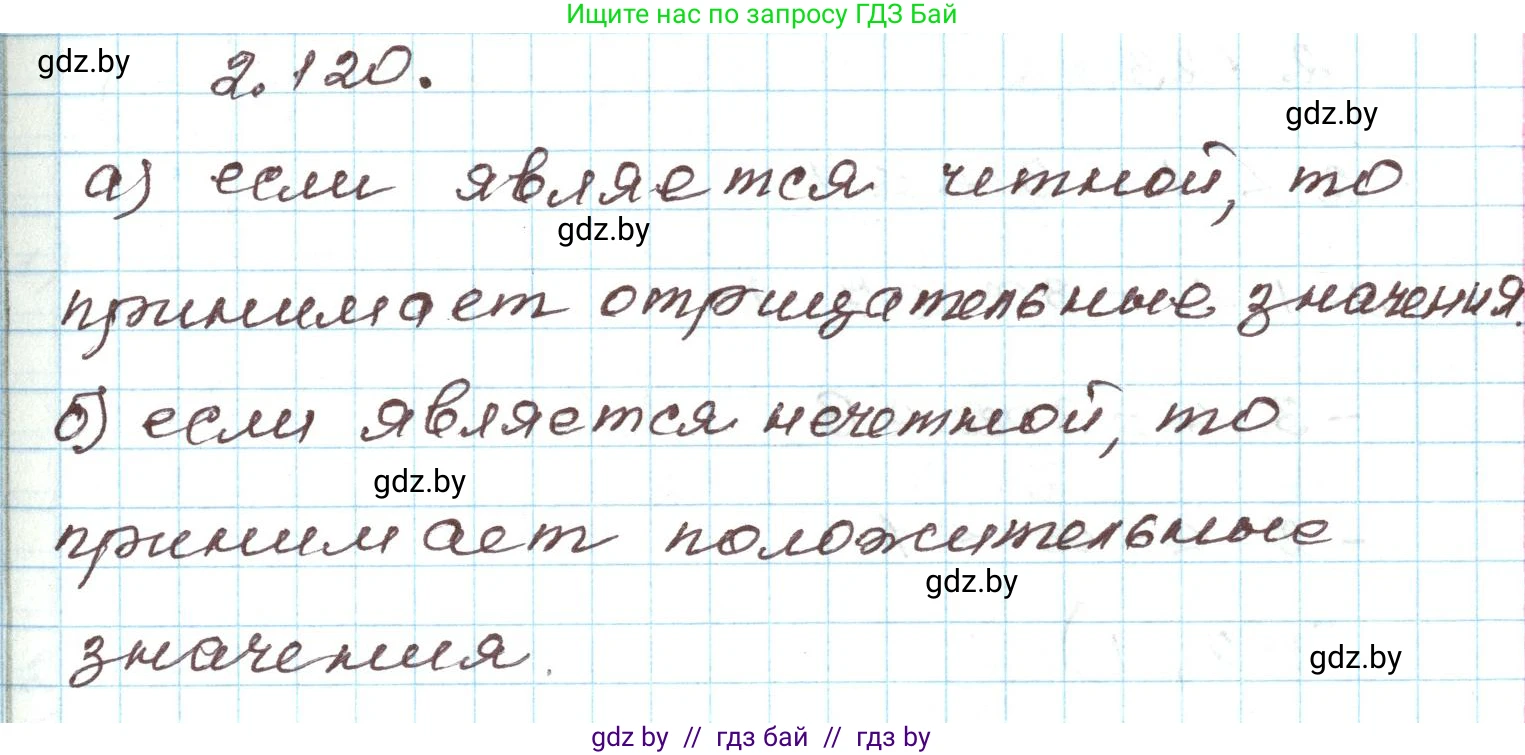 Ищите нас по запросу ГДЗ Бай
gdz.by
2.120.
gdz.by
а) если является четной, то
gdz.by
принимает отрицательные значения.
б) если является нечетной, то
gdz.by
принимает положительные
gdz.by
значения.
gdz.by
gdz by // гдз бай // гдз by